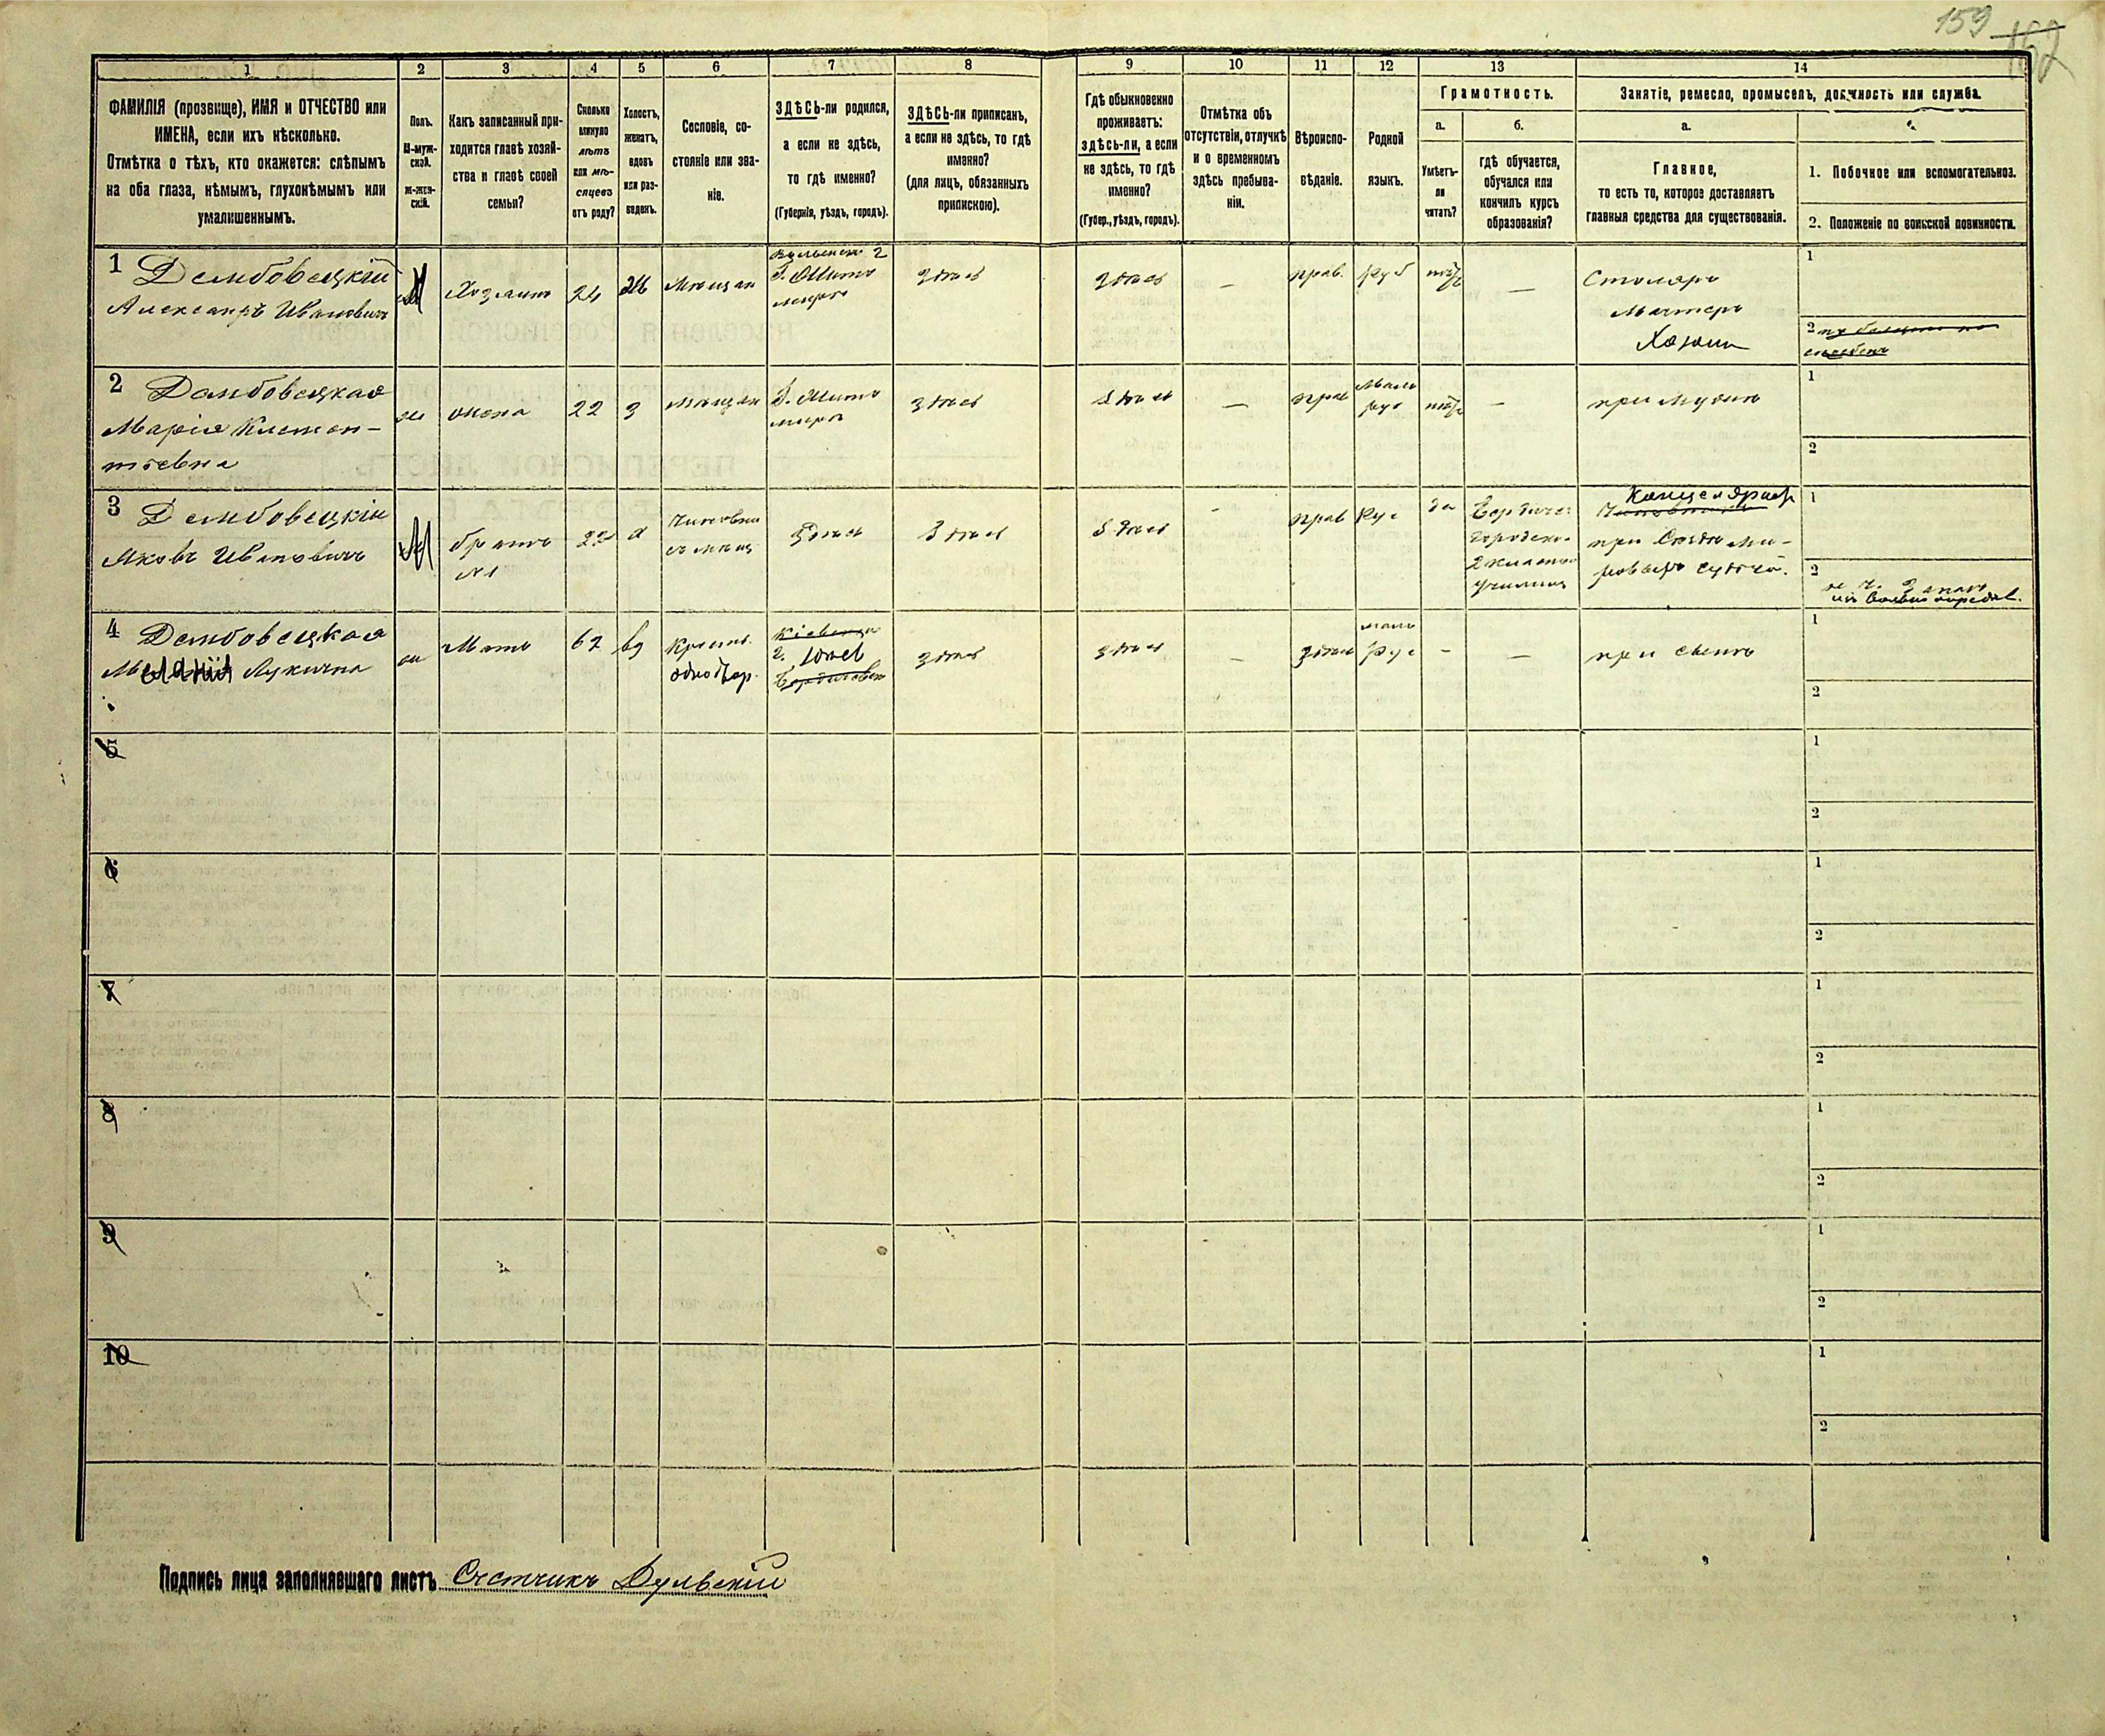 159
1
2
3
4
5
6
7
8
9
10
11
12
13
14
ФАМИЛІЯ (прозвище), ИМЯ и ОТЧЕСТВО или
ИМЕНА, если ихъ нѣсколько.
Отмѣтка о тѣхъ, кто окажется: слѣпымъ
на оба глаза, нѣмымъ, глухонѣмымъ или
умалишеннымъ.
Полъ.
М-муж-
ской.
ж-жен-
скій.
Какъ записанный при-
ходится главѣ хозяй-
ства и главѣ своей
семьи?
Сколько
минуло
лѣтъ
или мѣ-
сяцевъ
отъ роду?
Холостъ,
женатъ,
вдовъ
или раз-
веденъ.
Сословіе, со-
стояніе или зва-
ніе.
ЗДѢСЬ-ли родился,
а если не здѣсь,
то гдѣ именно?
(Губернія, уѣздъ, городъ).
ЗДѢСЬ-ли приписанъ,
а если не здѣсь, то гдѣ
именно?
(для лицъ, обязанныхъ
припискою).
Гдѣ обыкновенно
проживаетъ:
здѣсь-ли, а если
не здѣсь, то гдѣ
именно?
(Губер., уѣздъ, городъ).
Отмѣтка объ
отсутствіи, отлучкѣ
и о временномъ
здѣсь пребыва-
ніи.
Вѣроиспо-
вѣданіе.
Родной
языкъ.
Грамотность.
а.
Умѣетъ-
ли
читать?
б.
гдѣ обучается,
обучался или
кончилъ курсъ
образованія?
Занятіе, ремесло, промыселъ, должность или служба.
а.
Главное,
то есть то, которое доставляетъ
главныя средства для существованія.
1. Побочное или вспомогательное.
2. Положеніе по воинской повинности.
1 Дембовецкій
Александръ Ивановичъ
М
Хозяинъ
24
Ж
Мѣщан
г. Жито
миръ
здѣсь
здѣсь
—
прав.
Рус
—
Столяръ
Мастеръ
Хозяин
1
2
2 Дембовецкая
Марія Климен-
тьевна
ж
жена
22
з
Мѣщан
г. Жито
миръ
здѣсь
здѣсь
—
прав
мало
рус
—
при мужѣ
1
2
3 Дембовецкій
Яковъ Ивановичъ
М
братъ
№1
22
х
здѣсь
здѣсь
здѣсь
-
прав
Рус
да
Бердиче
городско
2 классно
училищ
Канцеляріст
Чиновникъ
при Съѣздѣ Ми-
ровыхъ Судей.
1
2
4 Дембовецкая
Меланія Лукична
ж
Мать
62
вд
Крест.
однодвор.
Кіевская
г. уѣзд
Бердичевск
здѣсь
здѣсь
—
мало
Рус
-
—
при сынѣ
1
2
5
1
2
6
1
2
7
1
2
8
1
2
9
1
2
10
1
2
Подпись лица заполнявшаго листъ Счетчикъ Дульскій